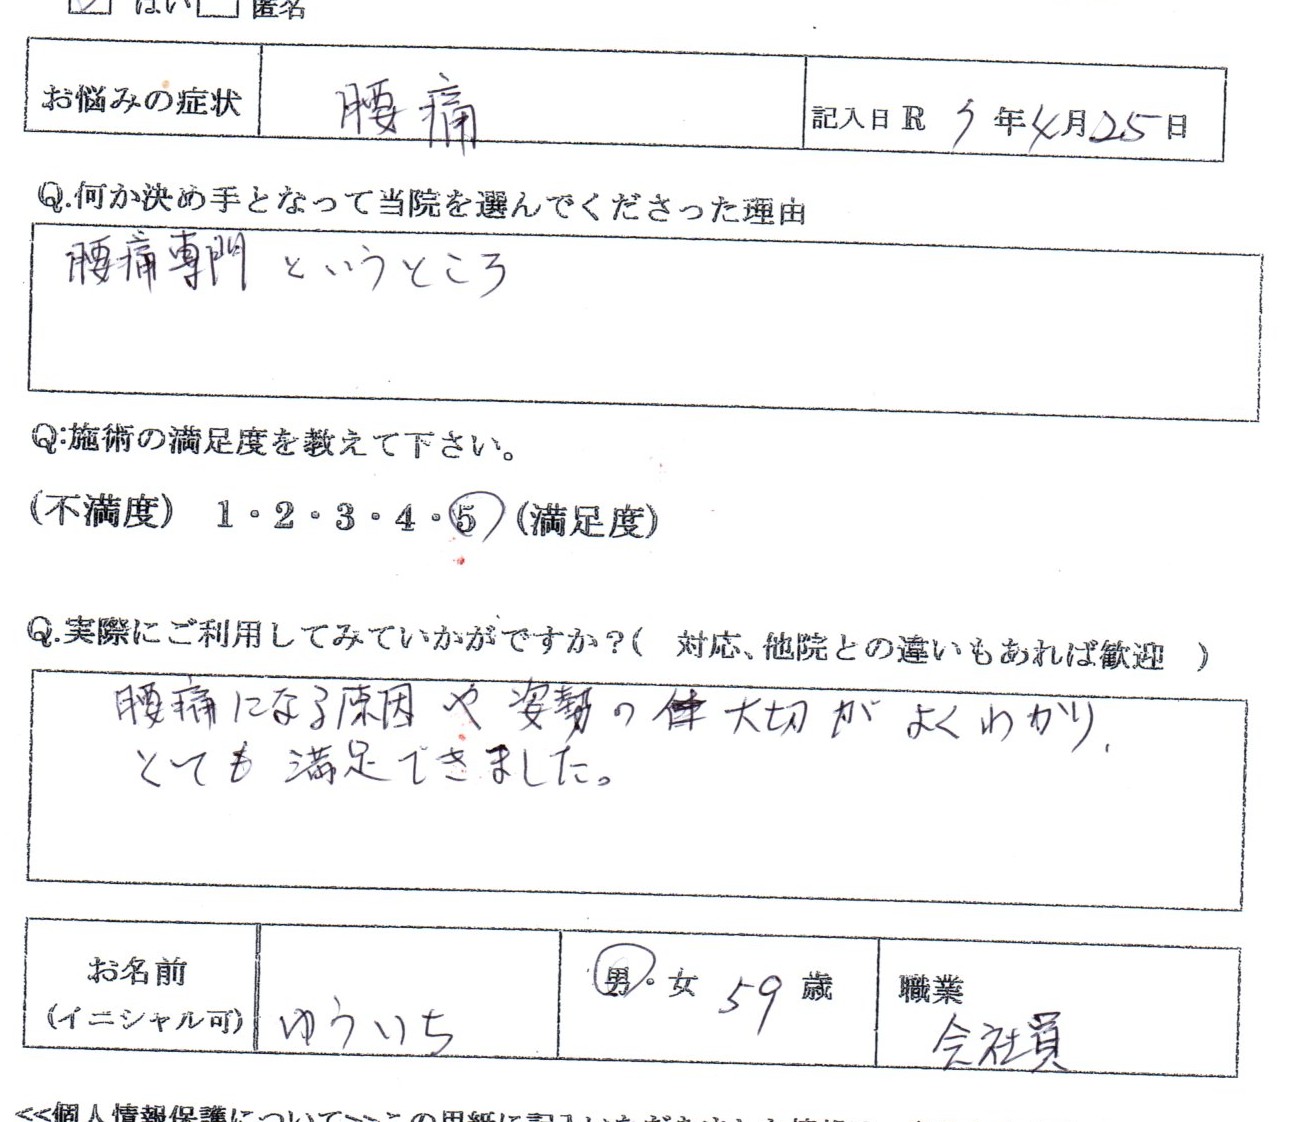 はい 匿名
お悩みの症状 腰痛 記入日 R 5年4月25日
Q.何か決め手となって当院を選んでくださった理由
腰痛専門というところ
Q:施術の満足度を教えて下さい。
(不満度) 1・2・3・4・5 (満足度)
Q.実際にご利用してみていかがですか?( 対応、他院との違いもあれば歓迎 )
腰痛になる原因や姿勢の 大切がよくわかり、
とても満足できました。
お名前 男・女 59歳 職業
(イニシャル可) ゆういち 会社員
<<個人情報保護について>>この用紙に記入いただきました情報